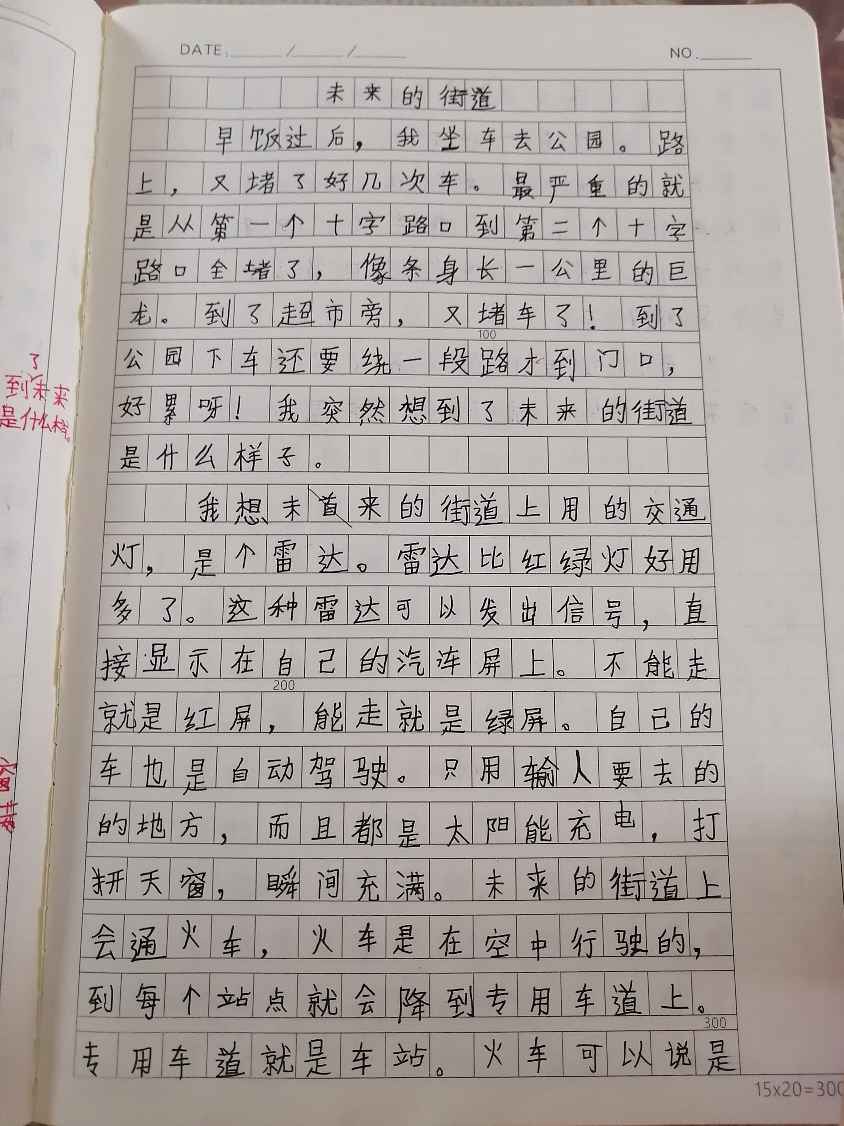 DATE: / /
NO.
未来的街道
早饭过后，我坐车去公园。路
上，又堵了好几次车。最严重的就
是从第一个十字路口到第二个十字
路口全堵了，像条身长一公里的巨
龙。到了超市旁，又堵车了！到了
100
公园下车还要绕一段路才到门口，
好累呀！我突然想到了未来的街道
是什么样子。
我想未来的街道上用的交通
灯，是个雷达。雷达比红绿灯好用
多了。这种雷达可以发出信号，直
接显示在自己的汽车屏上。不能走
200
就是红屏，能走就是绿屏。自己的
车也是自动驾驶。只用输人要去的
的地方，而且都是太阳能充电，打
开天窗，瞬间充满。未来的街道上
会通火车，火车是在空中行驶的，
到每个站点就会降到专用车道上。
300
专用车道就是车站。火车可以说是
15x20=300
了
到未来
是什么样。